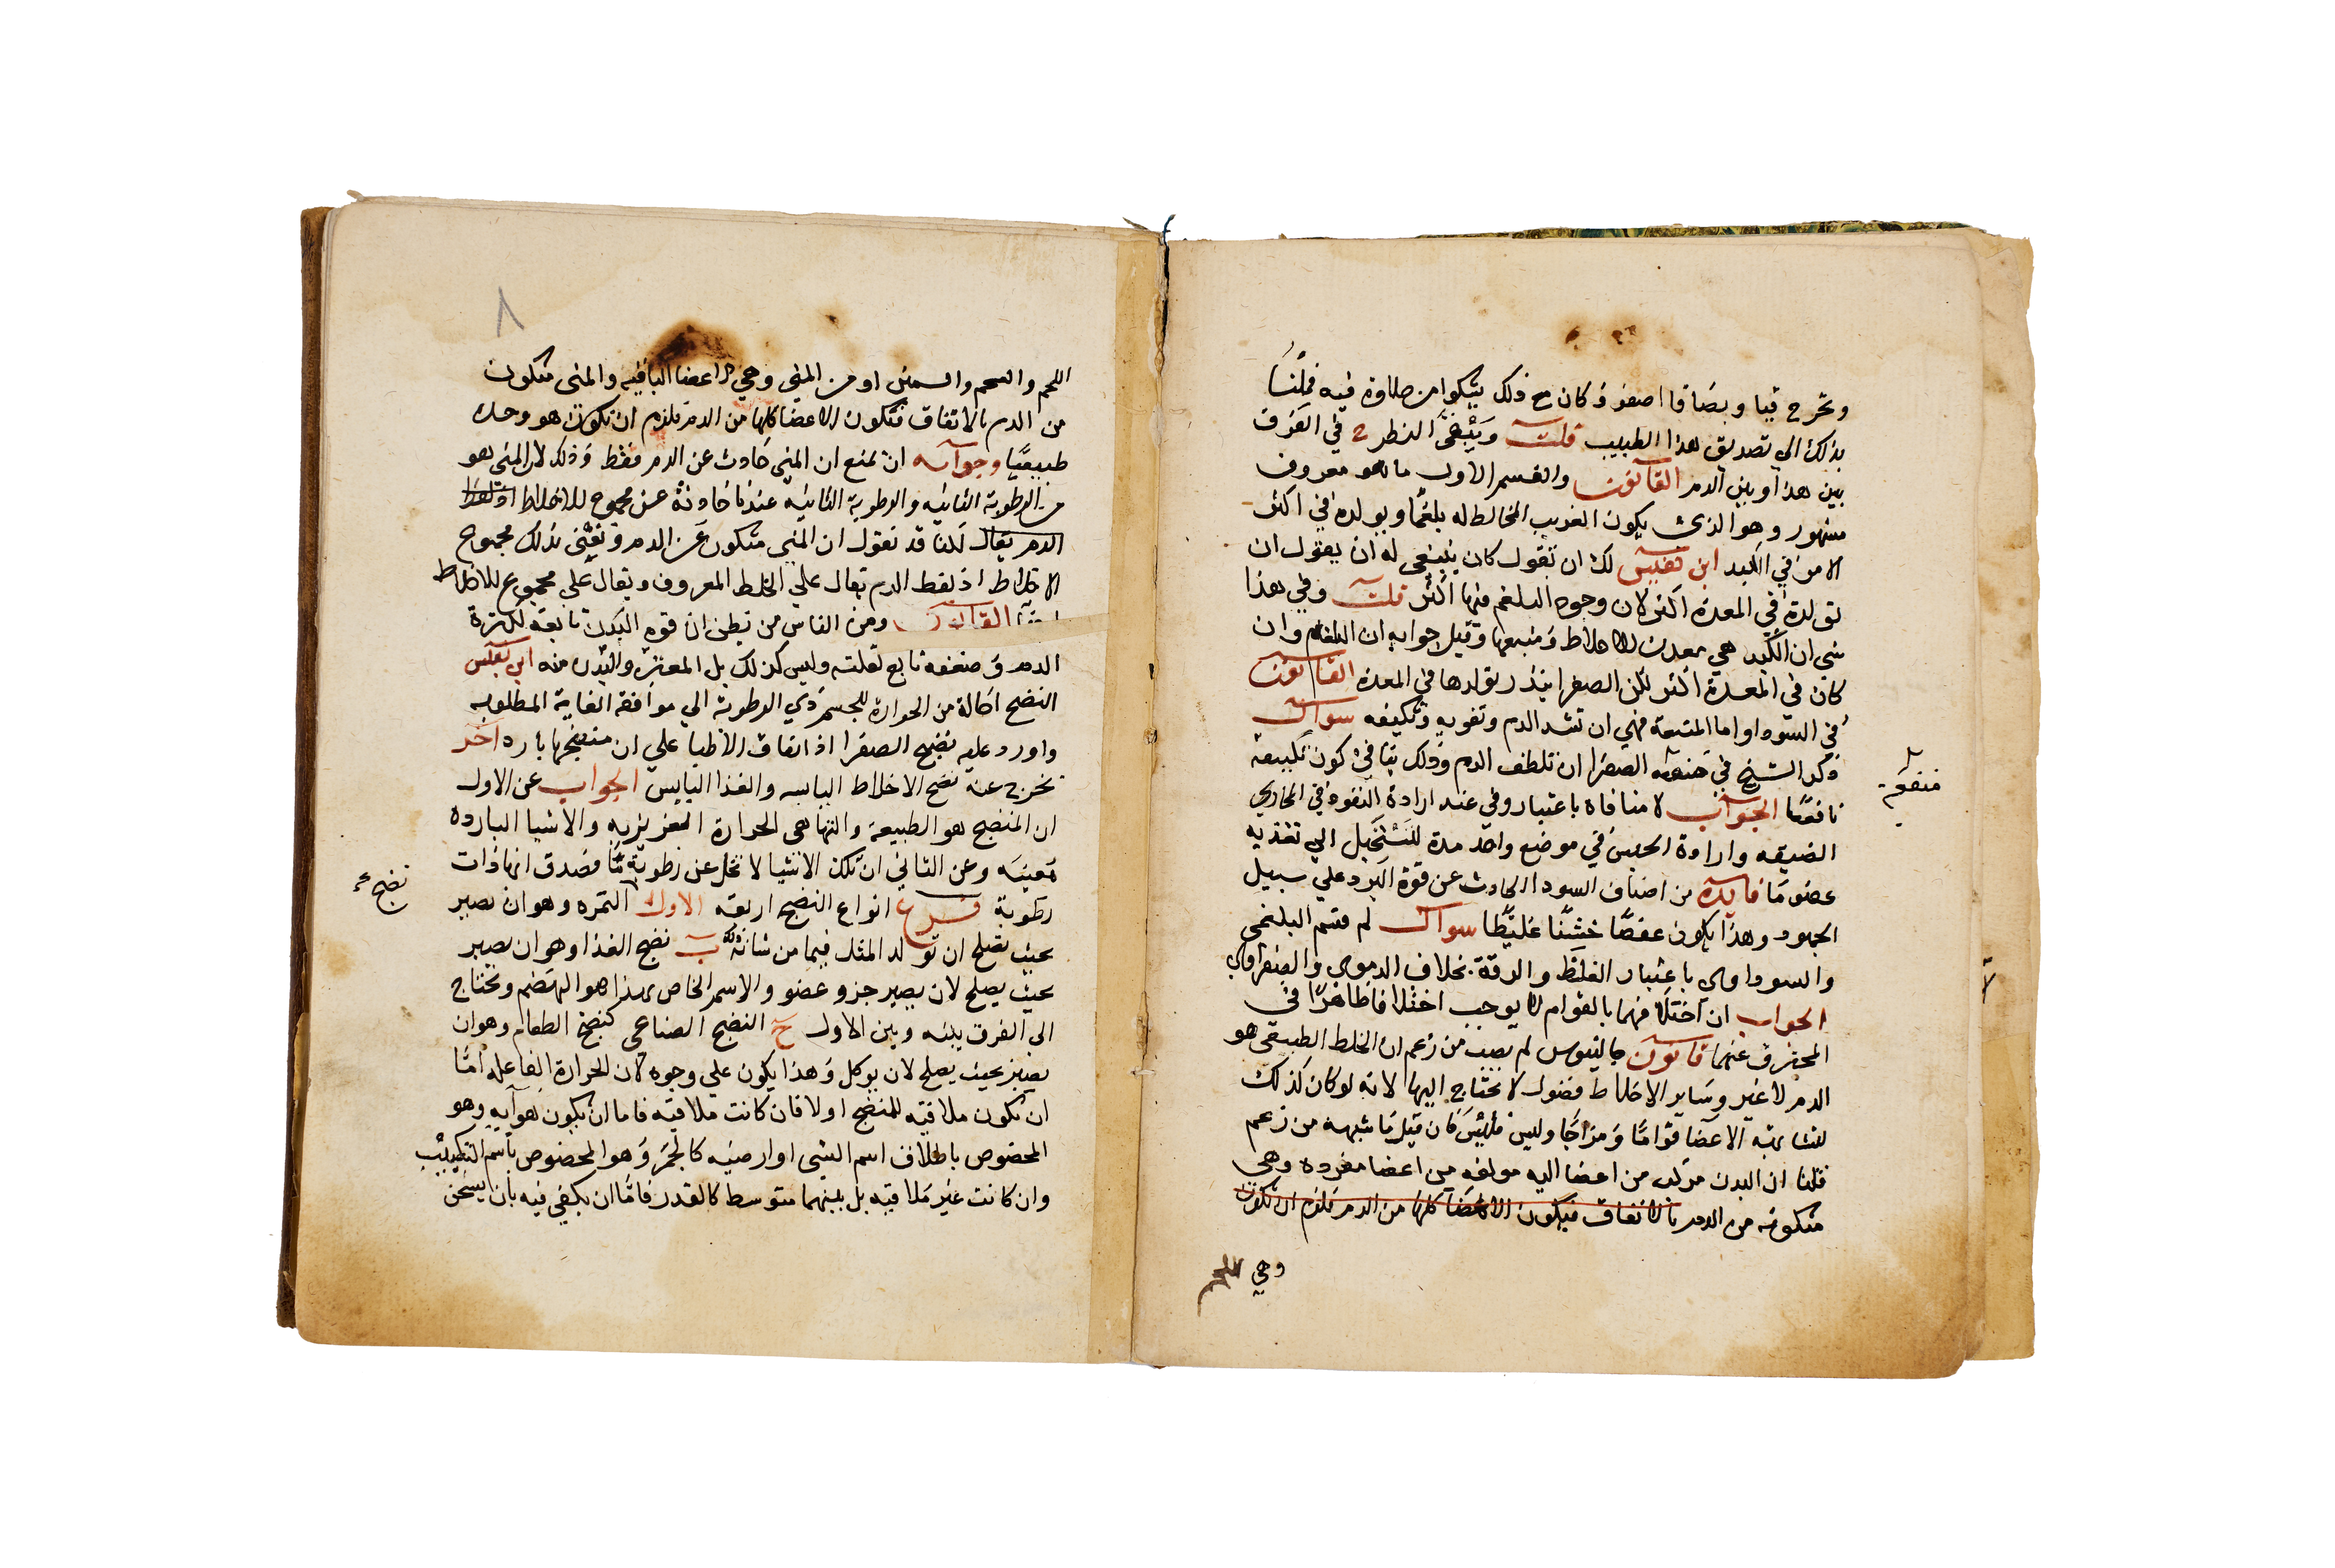 وتخرج قيا وبصاقا اصفر وكان مع ذلك يتكوا من حلاوة فيه فملنا
بذلك الي تصديق هذا الطبيب قلت وينبغي النظر في الفرق
بين هذا وبين الدم القانون والقسم الاول ما هو معروف
مشهور وهو الذي يكون الغريب المخالط له بلغما ويولده في اكثر
الامر في الكبد ابن نفيس لك ان تقول كان ينبغي له ان يقول ان
تولده في المعدة اكثر لان وجود البلغم فيها اكثر قلت وفي هذا
شي ان الكبد هي معدن الاخلاط ومنبعها وقيل جوابه ان البلغم وان
كان في المعدة اكثر لكن الصفرا ينذر تولدها في المعدة القانون
في السودا واما المنتفعة فهي ان تشد الدم وتقويه وتكيفه سوال
ذكر الشيخ في منفعة الصفرا ان تلطف الدم وذلك ينافي كون تكييفه
نافعا الجواب لا منافاة باعتبار وفي عند ارادة النفوذ في المجاري
الضيقه وارادة الحبس في موضع واحد مدة لتستحيل الي تغذيه
عضو ما فايدة من اصناف السودا الحادث عن قوة البرد علي سبيل
الجمود وهذا يكون عفصا خشنا غليظا سوال لم قسم البلغمي
والسوداوي باعتبار الغلظ والرقة بخلاف الدموي والصفراوي
الجواب ان اختلافهما بالقوام لا يوجب اختلافا ظاهرا في
المحترق عنهما قانون جالينوس لم يصب من زعم ان الخلط الطبيعي هو
الدم لا غير وساير الاخلاط فضول لا يحتاج اليها لانه لو كان كذلك
لتشابهة الاعضا قواما ومزاجا وليس فليس فان قيل ما شبهه من زعم
قلنا ان البدن مركب من اعضا اليه مولفه من اعضا مفرده وهي
متكونه من الدم بالاتفاق فيكون الاعضا كلها من الدم فلزم ان يكون
وهي
منفعة
اللحم والشحم والسمين او من المني وهي الاعضا الباقيه والمني متكون
من الدم بالاتفاق فتكون الاعضا كلها من الدم فلزم ان يكون هو وحده
طبيعيا وجوابه ان نمنع ان المني حادث عن الدم فقط وذلك لان المني هو
من الرطوبة الثانيه والرطوبة الثانيه عندنا حادثة عن مجموع للاخلاط او لفظ
الدم يقال لكنا قد نقول ان المني متكون عن الدم ونعني بذلك مجموع
الاخلاط اذ لفظ الدم يقال علي الخلط المعروف ويقال علي مجموع للاخلاط
القانون ومن الناس من يظن ان قوة البدن تابعة لكثرة
الدم وضعفه تابع لقلته وليس كذلك بل المعتبر والبدن منه ابن نفيس
النضج احالة من الحرارة للجسم ذي الرطوبة الي موافقة الغاية المطلوبه
واورد عليه نضج الصفرا اذ اتفاق الاطبا علي ان منضجها بارد اخر
تخرج عنه نضج الاخلاط اليابسه والغذا اليابس الجواب عن الاول
ان المنضج هو الطبيعة والتها هي الحرارة الغريزيه والاشيا البارده
معينه وعن الثاني ان تلك الاشيا لا تخل عن رطوبة ما فصدق انها ذات
رطوبة فرع انواع النضج اربعه الاول الثمره وهو ان يصير
بحيث يصلح ان تولد المثل فيما من شانه ب نضج الغذا وهو ان يصير
بحيث يصلح لان يصير جزو عضو والاسم الخاص بهذا هو الهضم ويحتاج
الي الفرق بينه وبين الاول ج النضج الصناعي كنضج الطعام وهو ان
يصير بحيث يصلح لان يوكل وهذا يكون علي وجوه لان الحرارة الفاعله اما
ان تكون ملاقيه للمنضج او لا فان كانت ملاقيه فاما ان يكون هوآيه وهو
المخصوص باطلاق اسم الشي او ارضيه كالجمر وهو المخصوص باسم التكبيب
وان كانت غير ملاقيه بل بينهما متوسط كالقدر فاما ان يكفي فيه بان يسخن
نضج
٨